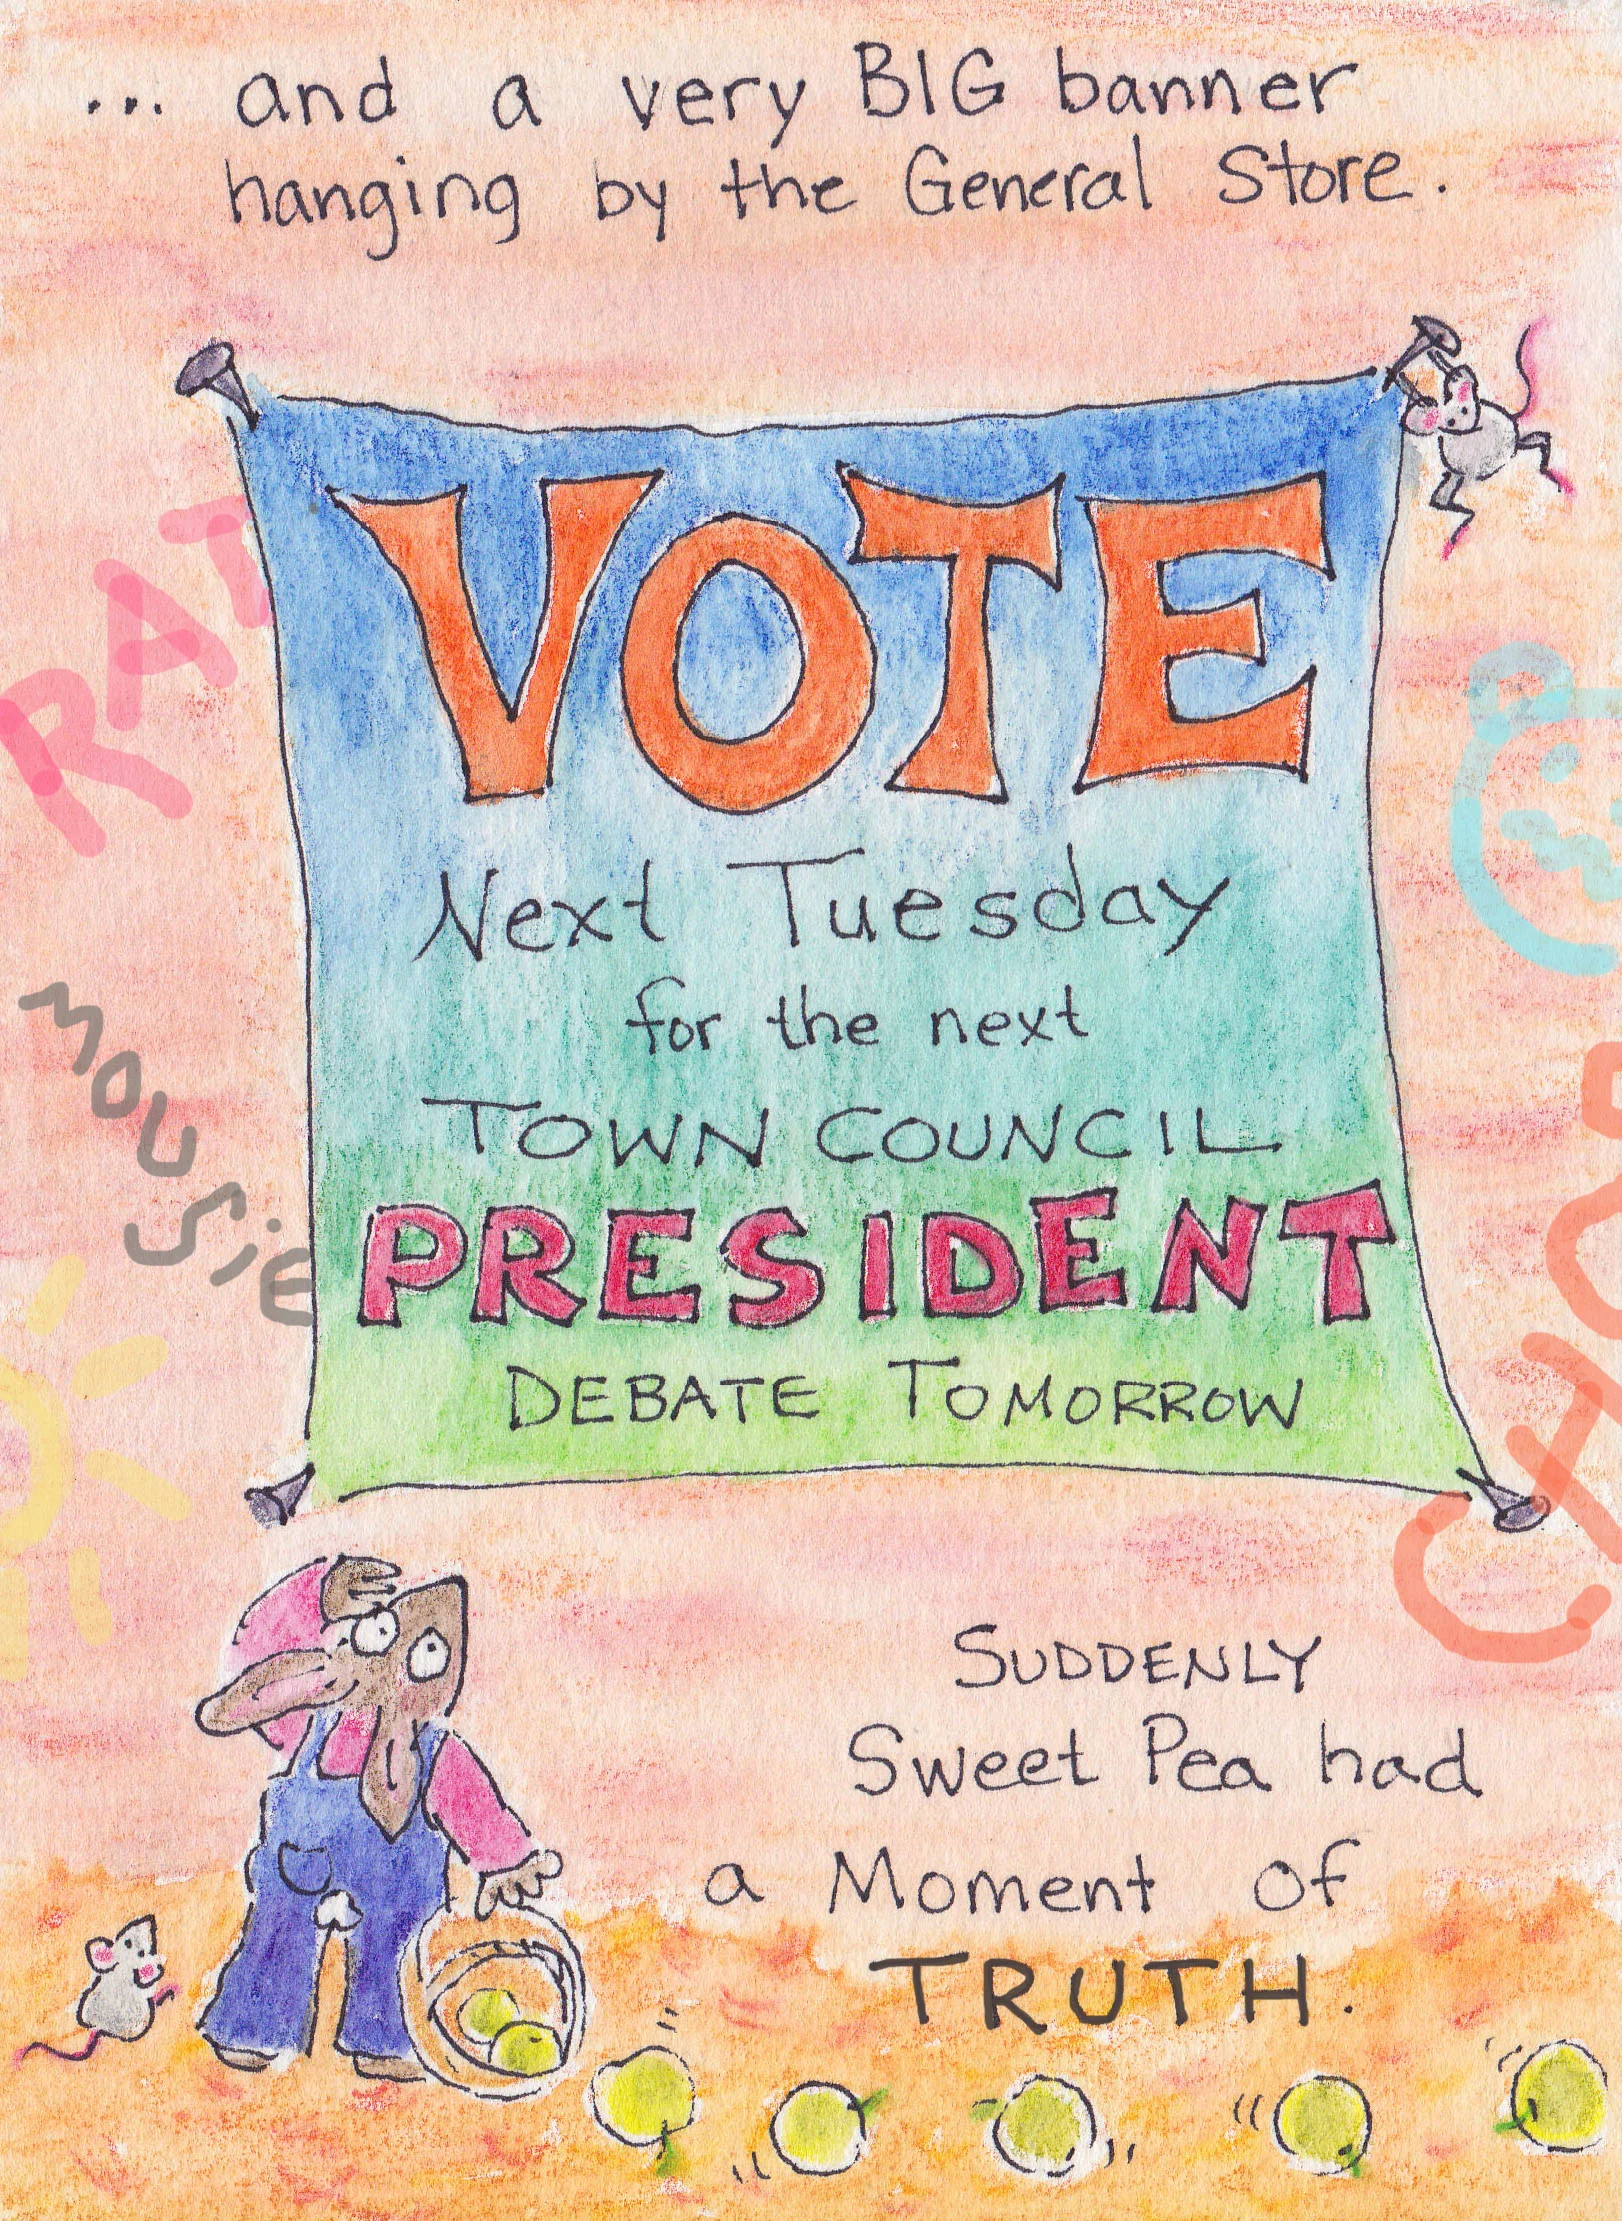 ... and a very BIG banner
hanging by the General Store.
RAT
VOTE
Next Tuesday
for the next
TOWN COUNCIL
mousie
PRESIDENT
DEBATE TOMORROW
SUDDENLY
Sweet Pea had
a Moment of
TRUTH.